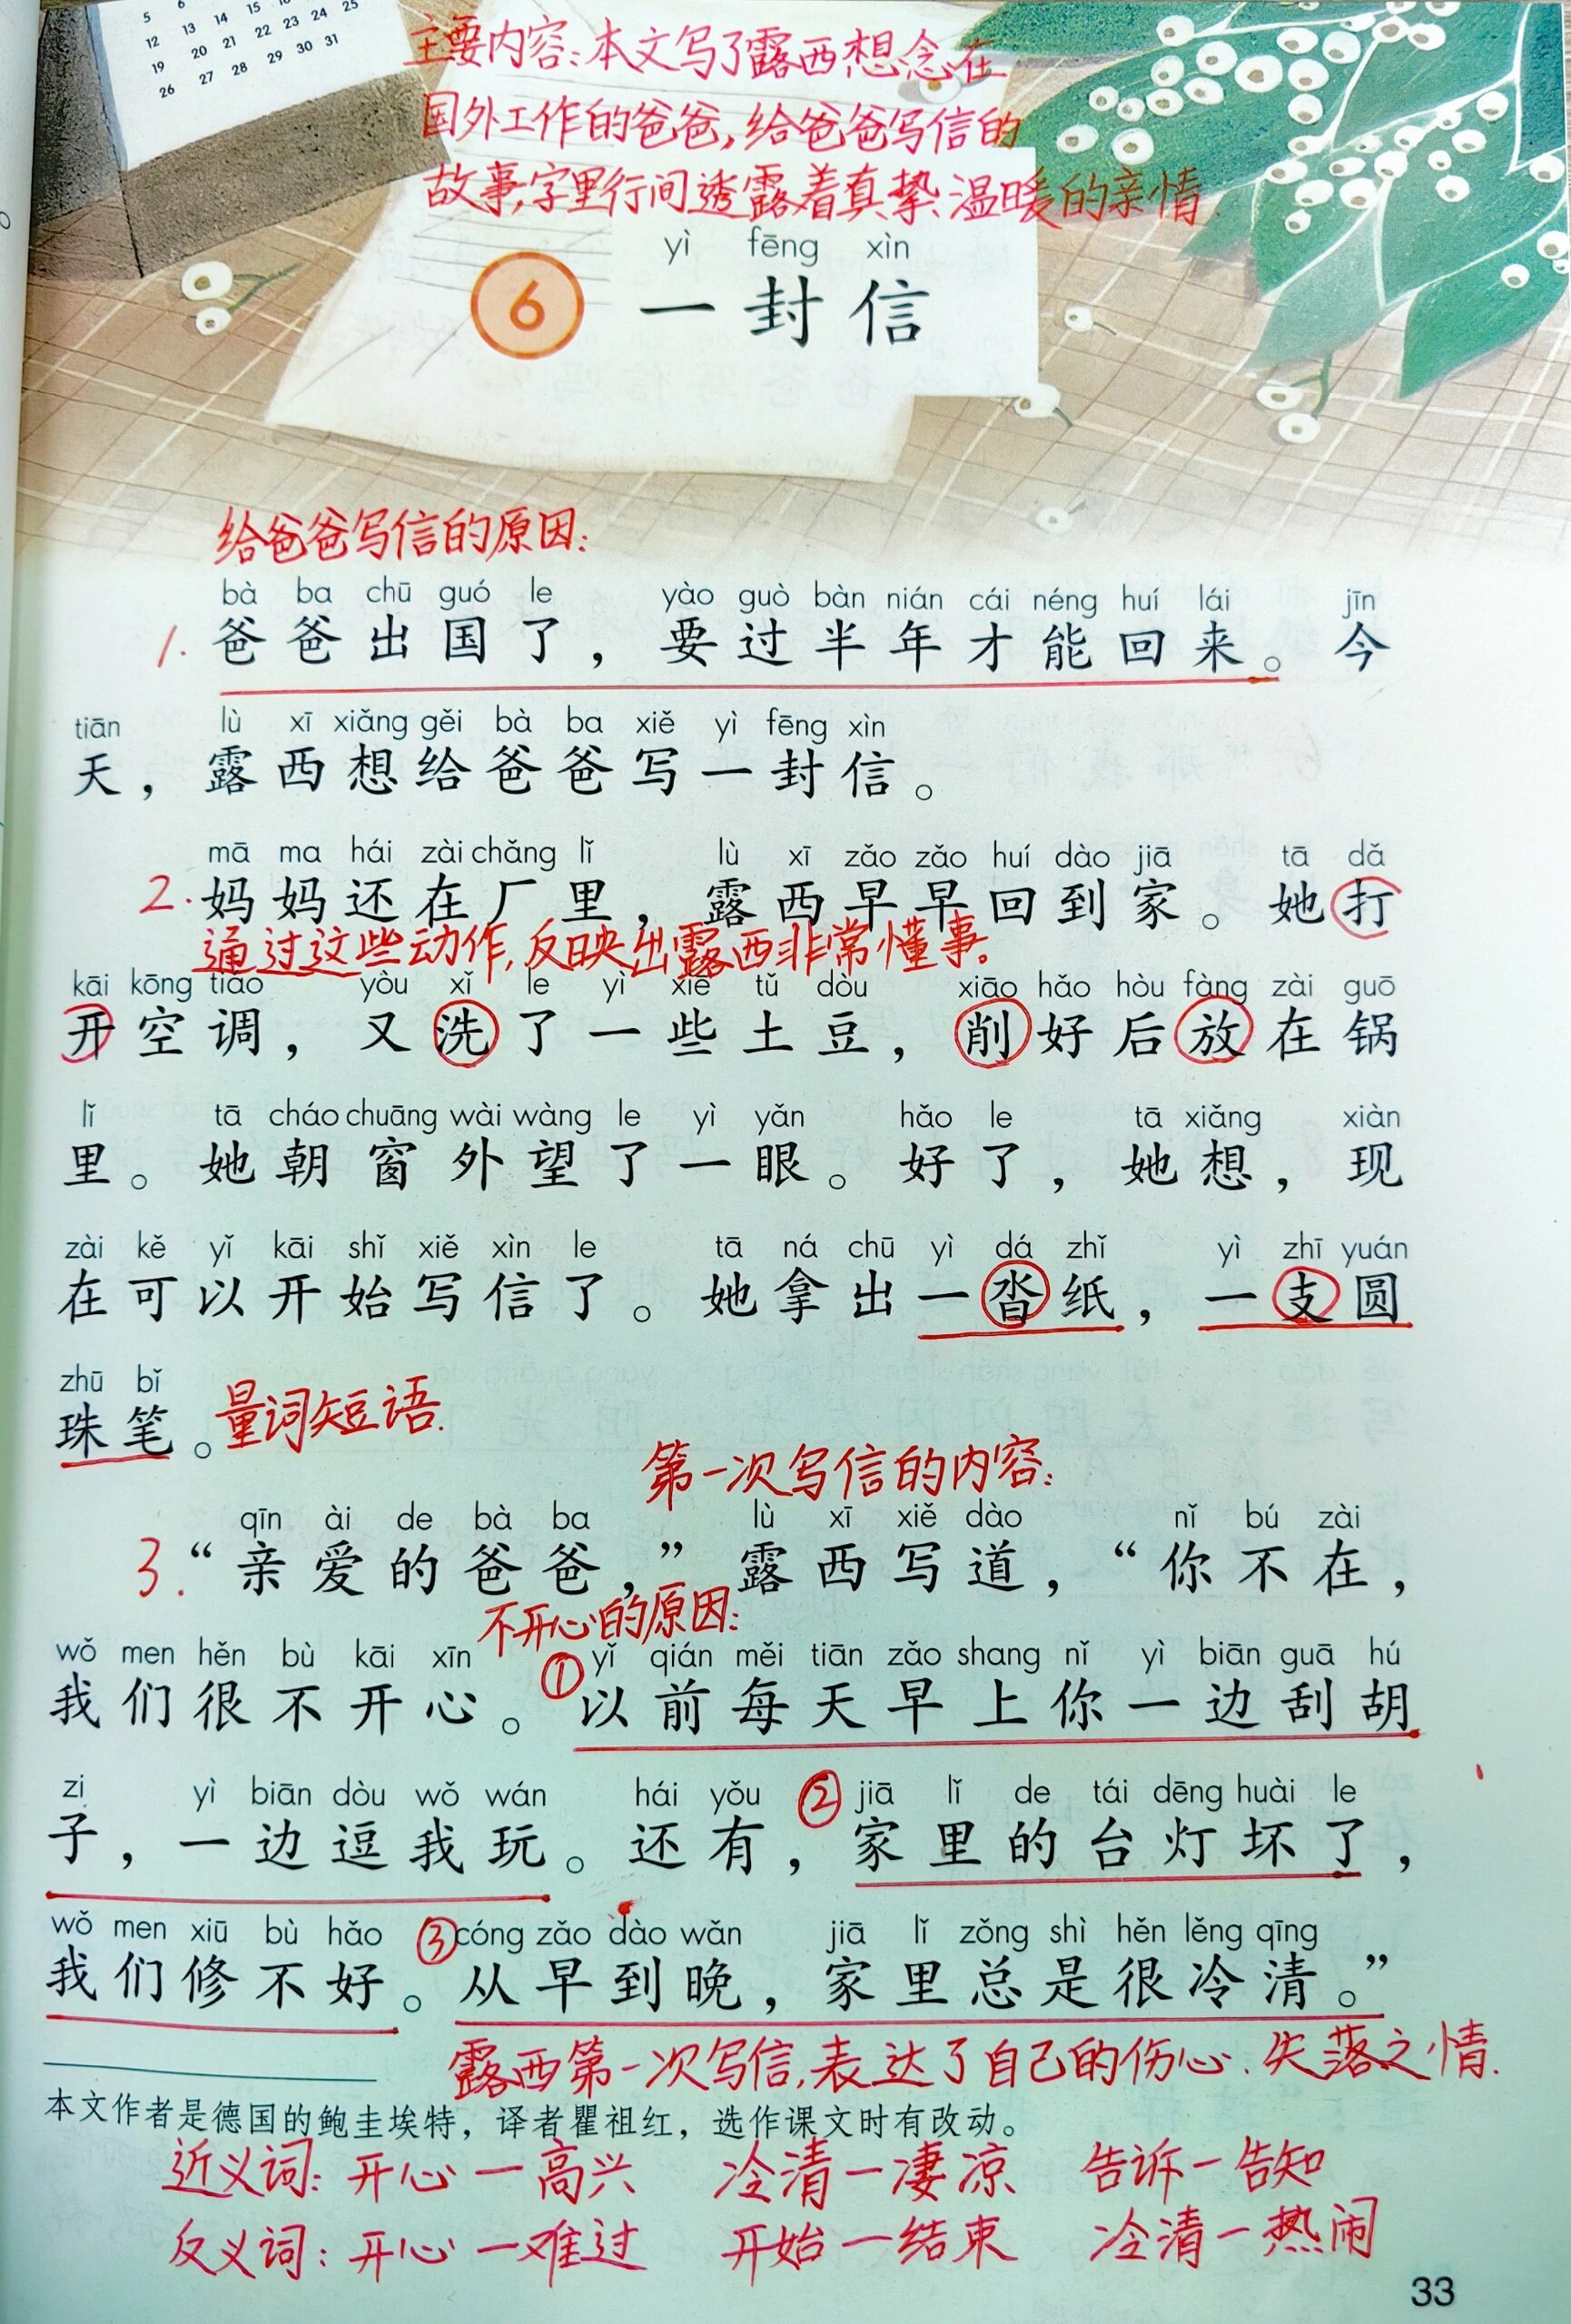 5 6 14 15 24 25
12 13 20 21 22 23
19 27 28 29 30 31
26
主要内容:本文写了露西想念在
国外工作的爸爸,给爸爸写信的
故事,字里行间透露着真挚、温暖的亲情.
yì fēng xìn
6 一封信
给爸爸写信的原因:
bà ba chū guó le yào guò bàn nián cái néng huí lái jīn
1. 爸爸出国了，要过半年才能回来。今
tiān lù xī xiǎng gěi bà ba xiě yì fēng xìn
天，露西想给爸爸写一封信。
mā ma hái zài chǎng lǐ lù xī zǎo zǎo huí dào jiā tā dǎ
2. 妈妈还在厂里，露西早早回到家。她打
通过这些动作,反映出露西非常懂事。
kāi kōng tiáo yòu xǐ le yì xiē tǔ dòu xiāo hǎo hòu fàng zài guō
开空调，又洗了一些土豆，削好后放在锅
lǐ tā cháo chuāng wài wàng le yì yǎn hǎo le tā xiǎng xiàn
里。她朝窗外望了一眼。好了，她想，现
zài kě yǐ kāi shǐ xiě xìn le tā ná chū yì dá zhǐ yì zhī yuán
在可以开始写信了。她拿出一沓纸，一支圆
zhū bǐ
珠笔。量词短语.
第一次写信的内容:
qīn ài de bà ba lù xī xiě dào nǐ bú zài
3. “亲爱的爸爸，”露西写道，“你不在，
不开心的原因:
wǒ men hěn bù kāi xīn yǐ qián měi tiān zǎo shang nǐ yì biān guā hú
我们很不开心。①以前每天早上你一边刮胡
zi yì biān dòu wǒ wán hái yǒu jiā lǐ de tái dēng huài le
子，一边逗我玩。还有，②家里的台灯坏了，
wǒ men xiū bù hǎo cóng zǎo dào wǎn jiā lǐ zǒng shì hěn lěng qīng
我们修不好。③从早到晚，家里总是很冷清。”
露西第一次写信,表达了自己的伤心、失落之情.
本文作者是德国的鲍圭埃特，译者瞿祖红，选作课文时有改动。
近义词: 开心—高兴 冷清—凄凉 告诉—告知
反义词: 开心—难过 开始—结束 冷清—热闹
33